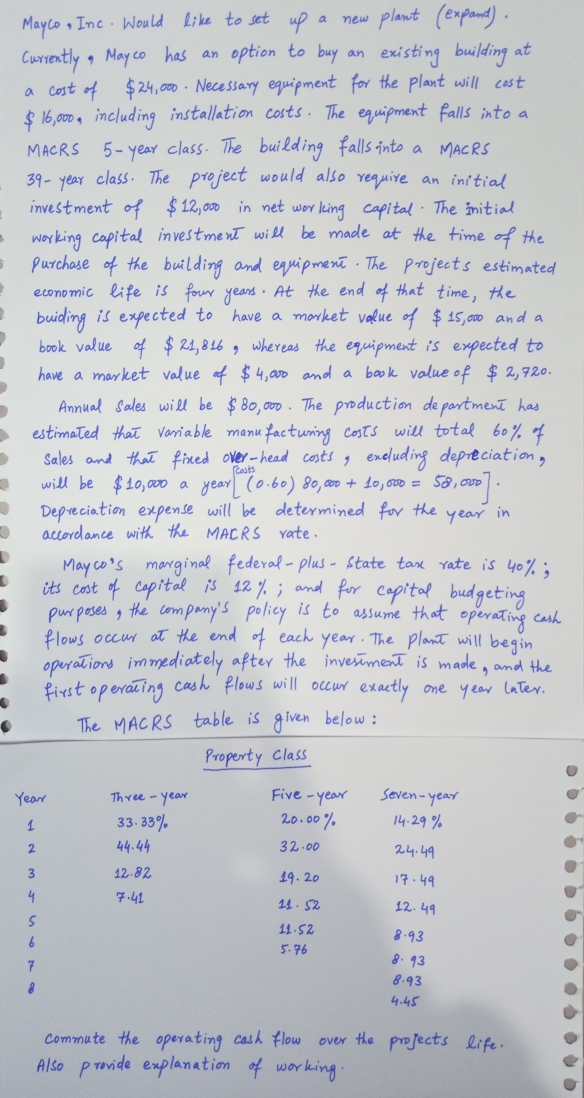 Mayco, Inc. Would like to set up a new plant (expand).
Currently, Mayco has an option to buy an existing building at
a cost of $24,000. Necessary equipment for the plant will cost
$16,000, including installation costs. The equipment falls into a
MACRS 5-year class. The building falls into a MACRS
39-year class. The project would also require an initial
investment of $12,000 in net working capital. The initial
working capital investment will be made at the time of the
Purchase of the building and equipment. The projects estimated
economic life is four years. At the end of that time, the
buiding is expected to have a market value of $15,000 and a
book value of $21,816, whereas the equipment is expected to
have a market value of $4,000 and a book value of $2,720.
Annual Sales will be $80,000. The production department has
estimated that variable manufacturing costs will total 60% of
Sales and that fixed over-head costs, excluding depreciation,
will be $10,000 a year [costs (0.60) 80,000 + 10,000 = 58,000].
Depreciation expense will be determined for the year in
accordance with the MACRS rate.
Mayco's marginal federal-plus-State tax rate is 40%;
its cost of capital is 12%; and for capital budgeting
purposes, the company's policy is to assume that operating cash
flows occur at the end of each year. The plant will begin
operations immediately after the investment is made, and the
first operating cash flows will occur exactly one year later.
The MACRS table is given below:
Property Class
Year Three-year Five-year Seven-year
1 33.33% 20.00% 14.29%
2 44.44 32.00 24.49
3 12.82 19.20 17.49
4 7.41 11.52 12.49
5 11.52 8.93
6 5.76 8.93
7 8.93
8 4.45
Commute the operating cash flow over the projects life.
Also provide explanation of working.